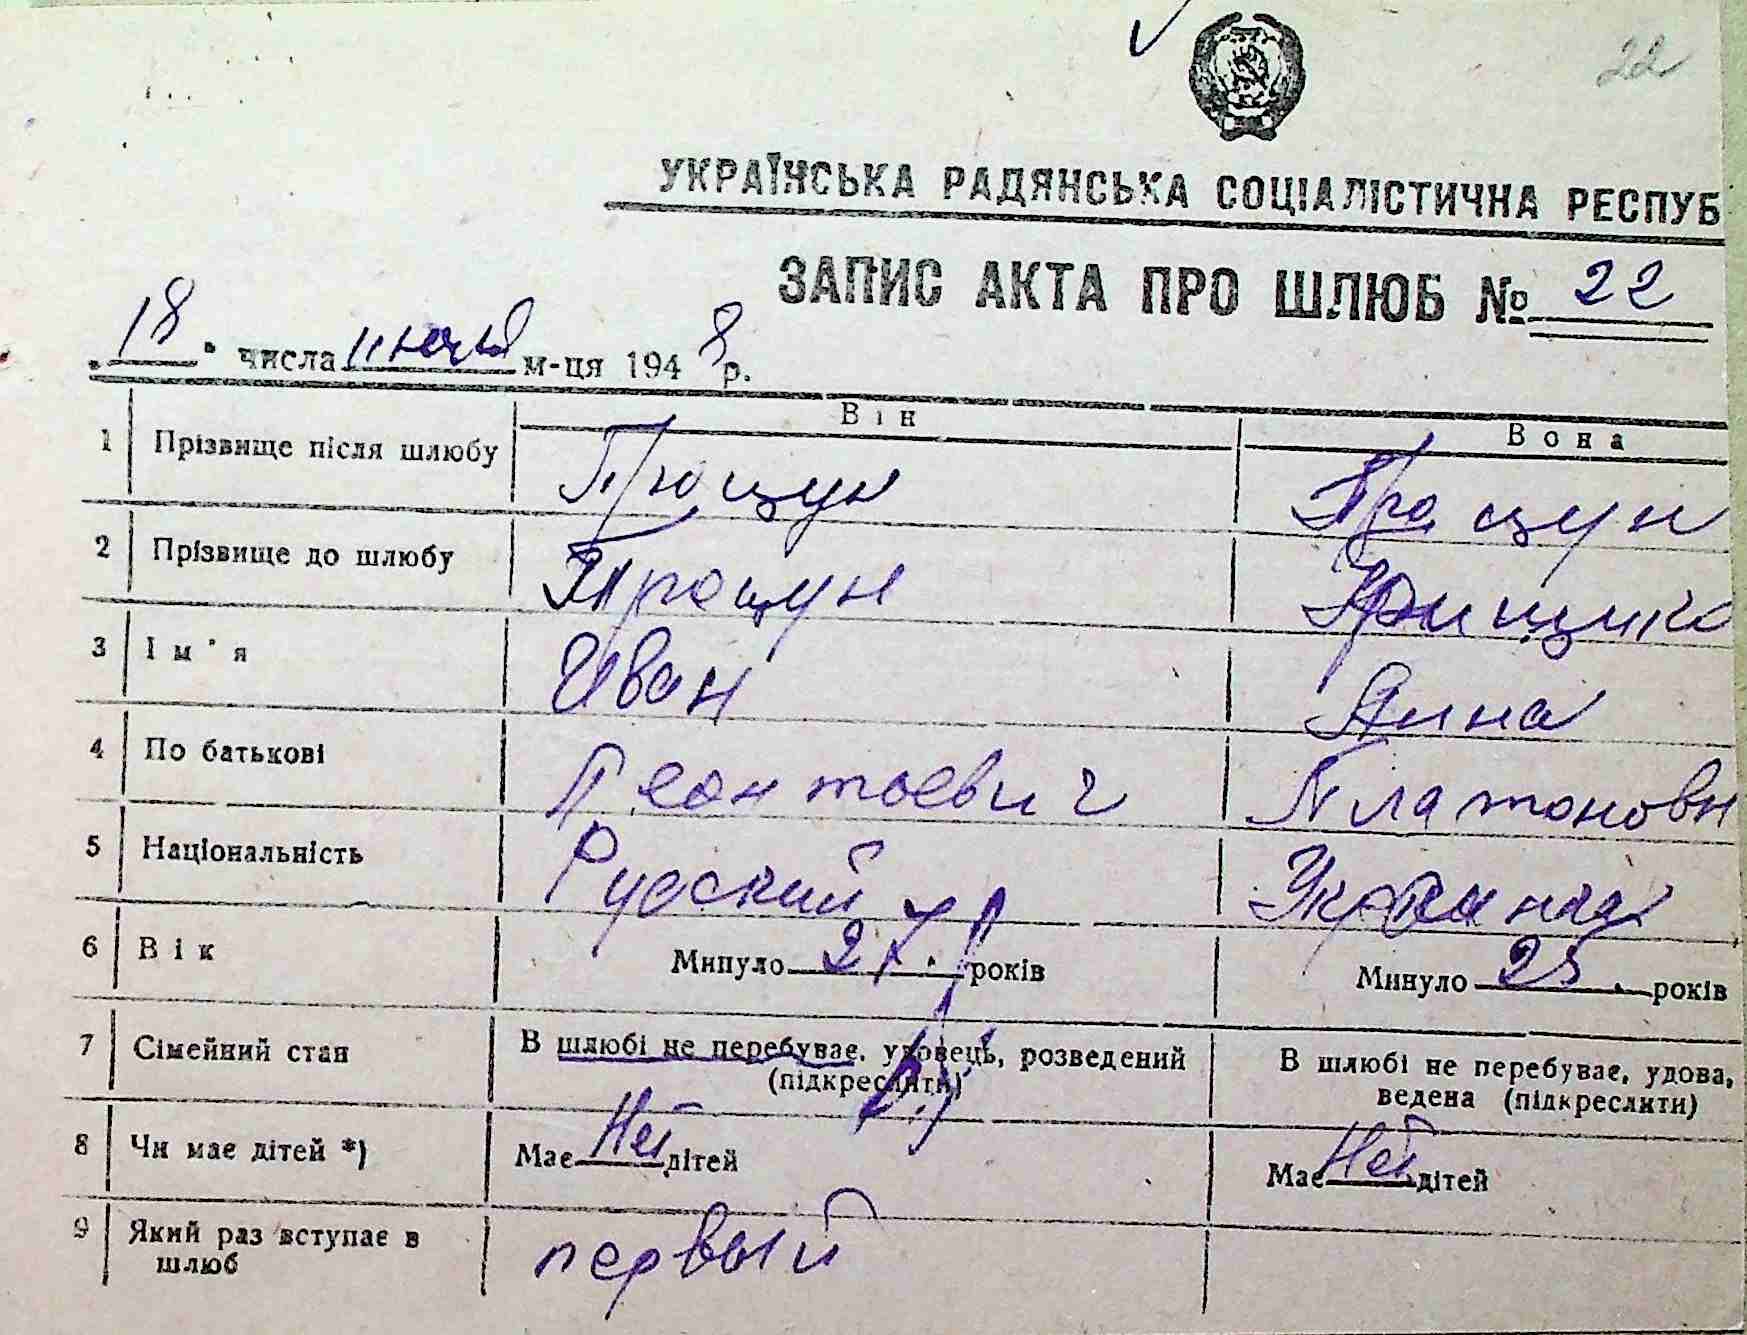 22
УКРАЇНСЬКА РАДЯНСЬКА СОЦІАЛІСТИЧНА РЕСПУБ
ЗАПИС АКТА ПРО ШЛЮБ № 22
18 числа м-ця 1948 р.
Він Вона
1 Прізвище після шлюбу Прощун Прощун
2 Прізвище до шлюбу Прощун
3 Ім'я Иван Анна
4 По батькові Леонтьевич Платоновн
5 Національність Русский Украинка
6 Вік Минуло 27 років Минуло 25 років
7 Сімейний стан В шлюбі не перебуває, удовець, розведений В шлюбі не перебуває, удова,
(підкреслити) ведена (підкреслити)
8 Чи має дітей *) Має Нет дітей Має Нет дітей
9 Який раз вступає в шлюб первый